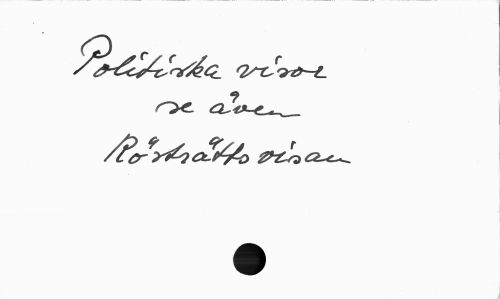 Politiska visor
se även
Rösträttsvisan